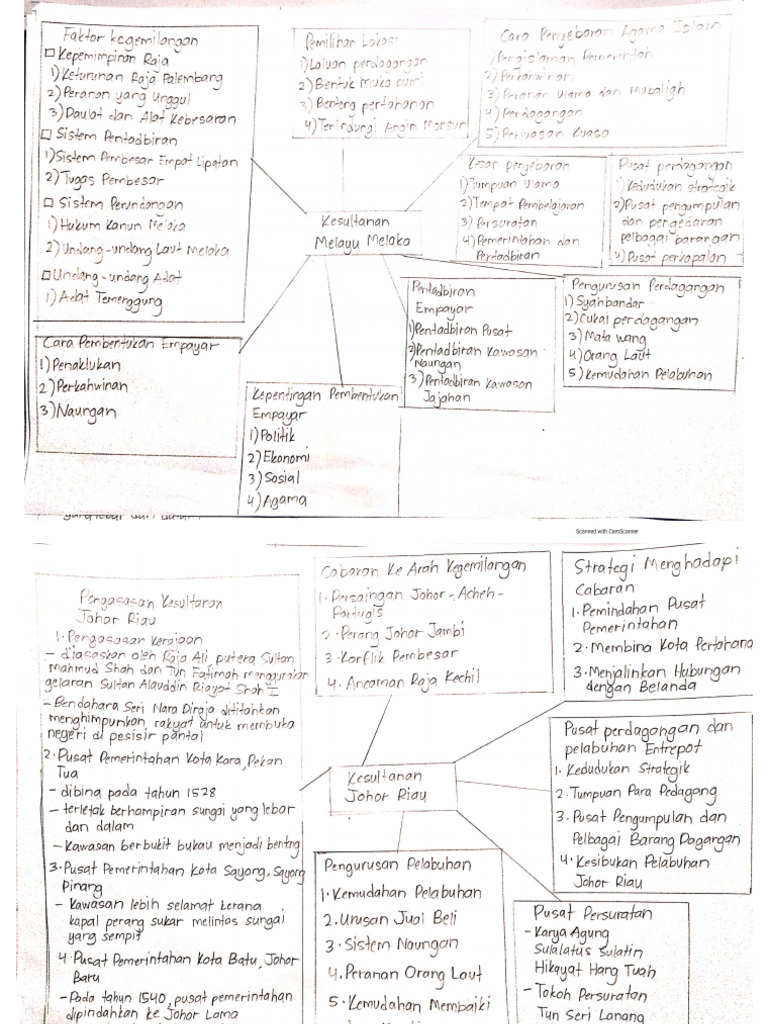 Faktor kegemilangan
□ Kepemimpinan Raja
1) Keturunan Raja Palembang
2) Peranan yang Unggul
3) Daulat dan Alat Kebesaran
□ Sistem Pentadbiran
1) Sistem Pembesar Empat Lipatan
2) Tugas Pembesar
□ Sistem Perundangan
1) Hukum Kanun Melaka
2) Undang-undang Laut Melaka
□ Undang-undang Adat
1) Adat Temenggung
Pemilihan Lokasi
1) Laluan perdagangan
2) Bentuk muka bumi
3) Benteng pertahanan
4) Terlindungi Angin Monsun
Cara Penyebaran Agama Islam
1) Pengislaman Pemerintah
2) Perkahwinan
3) Peranan Ulama dan Mubaligh
4) Perdagangan
5) Perluasan Kuasa
Kesan penyebaran
1) Tumpuan Ulama
2) Tempat Pembelajaran
3) Persuratan
4) Pemerintahan dan
Pentadbiran
Pusat perdagangan
1) Kedudukan strategik
2) Pusat pengumpulan
dan pengedaran
pelbagai barangan
4) Pusat perkapalan
Kesultanan
Melayu Melaka
Cara Pembentukan Empayar
1) Penaklukan
2) Perkahwinan
3) Naungan
Kepentingan Pembentukan
Empayar
1) Politik
2) Ekonomi
3) Sosial
4) Agama
Pentadbiran
Empayar
1) Pentadbiran Pusat
2) Pentadbiran Kawasan
Naungan
3) Pentadbiran Kawasan
Jajahan
Pengurusan Perdagangan
1) Syahbandar
2) Cukai perdagangan
3) Mata wang
4) Orang Laut
5) Kemudahan Pelabuhan
Scanned with CamScanner
Pengasasan Kesultanan
Johor Riau
1. Pengasasan Kerajaan
- diasaskan oleh Raja Ali putera Sultan
mahmud Shah dan Tun Fatimah menggunakan
gelaran Sultan Alauddin Riayat Shah I
- Bendahara Seri Nara Diraja dititahkan
menghimpunkan rakyat untuk membuka
negeri di pesisir pantai
2. Pusat Pemerintahan Kota Kara, Pekan
Tua
- dibina pada tahun 1528
- terletak berhampiran sungai yang lebar
dan dalam
- Kawasan berbukit bukau menjadi benteng
3. Pusat Pemerintahan Kota Sayong, Sayong
Pinang
- Kawasan lebih selamat kerana
kapal perang sukar melintas sungai
yang sempit
4. Pusat Pemerintahan Kota Batu, Johor
Baru
- Pada tahun 1540, pusat pemerintahan
dipindahkan ke Johor Lama
Cabaran Ke Arah Kegemilangan
1. Persaingan Johor-Acheh-
Portugis
2. Perang Johor Jambi
3. Konflik Pembesar
4. Ancaman Raja Kechil
Strategi Menghadapi
Cabaran
1. Pemindahan Pusat
Pemerintahan
2. Membina Kota Pertahana
3. Menjalinkan Hubungan
dengan Belanda
Kesultanan
Johor Riau
Pusat perdagangan dan
pelabuhan Entrepot
1. Kedudukan Strategik
2. Tumpuan Para Pedagang
3. Pusat Pengumpulan dan
Pelbagai Barang Dagangan
4. Kesibukan Pelabuhan
Johor Riau
Pengurusan Pelabuhan
1. Kemudahan Pelabuhan
2. Urusan Jual Beli
3. Sistem Naungan
4. Peranan Orang Laut
5. Kemudahan Membaiki
Pusat Persuratan
- Karya Agung
Sulalatus Sulatin
Hikayat Hang Tuah
- Tokoh Persuratan
Tun Seri Lanang